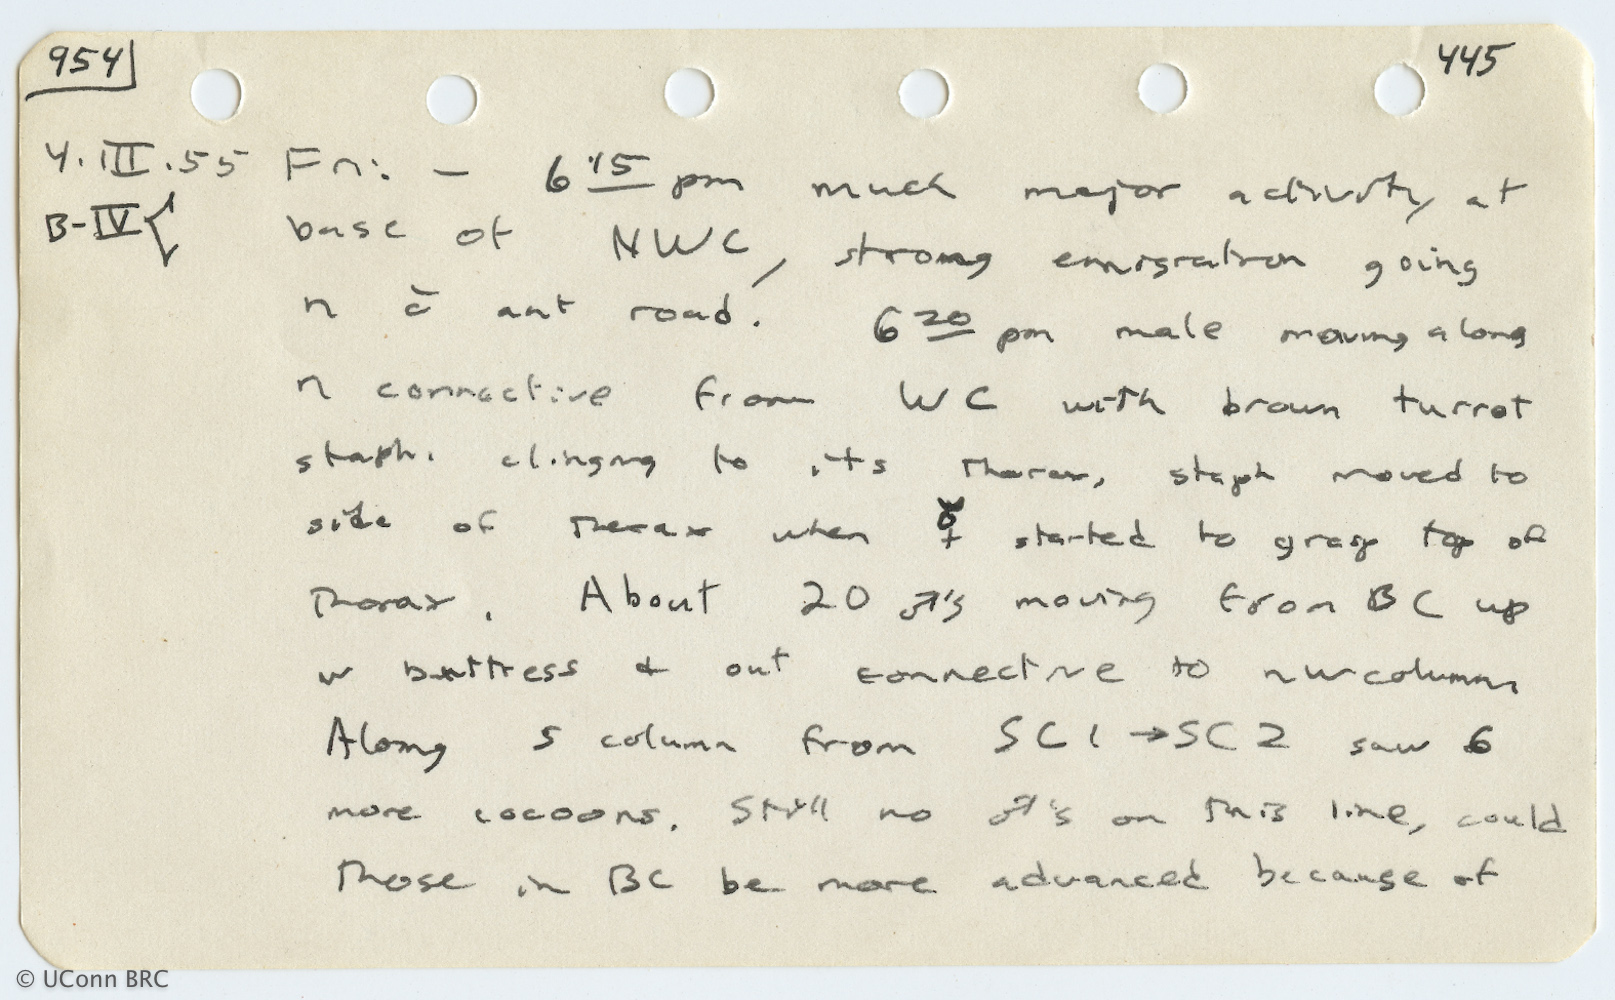 954 445
4.III.55 Fri: - 6:15 pm much major activity at
B-IV{ base of NWC, strong emigration going
n c̄ ant road. 6 20 pm male moving along
n connective from WC with brown turret
staph. clinging to its thorax, staph moved to
side of thorax when ☿ started to grasp top of
thorax. About 20 ♂'s moving from BC up
w buttress & out connective to nw column
Along s column from SC1 → SC2 saw 6
more cocoons. Still no ♂'s on this line, could
those in BC be more advanced because of
© UConn BRC